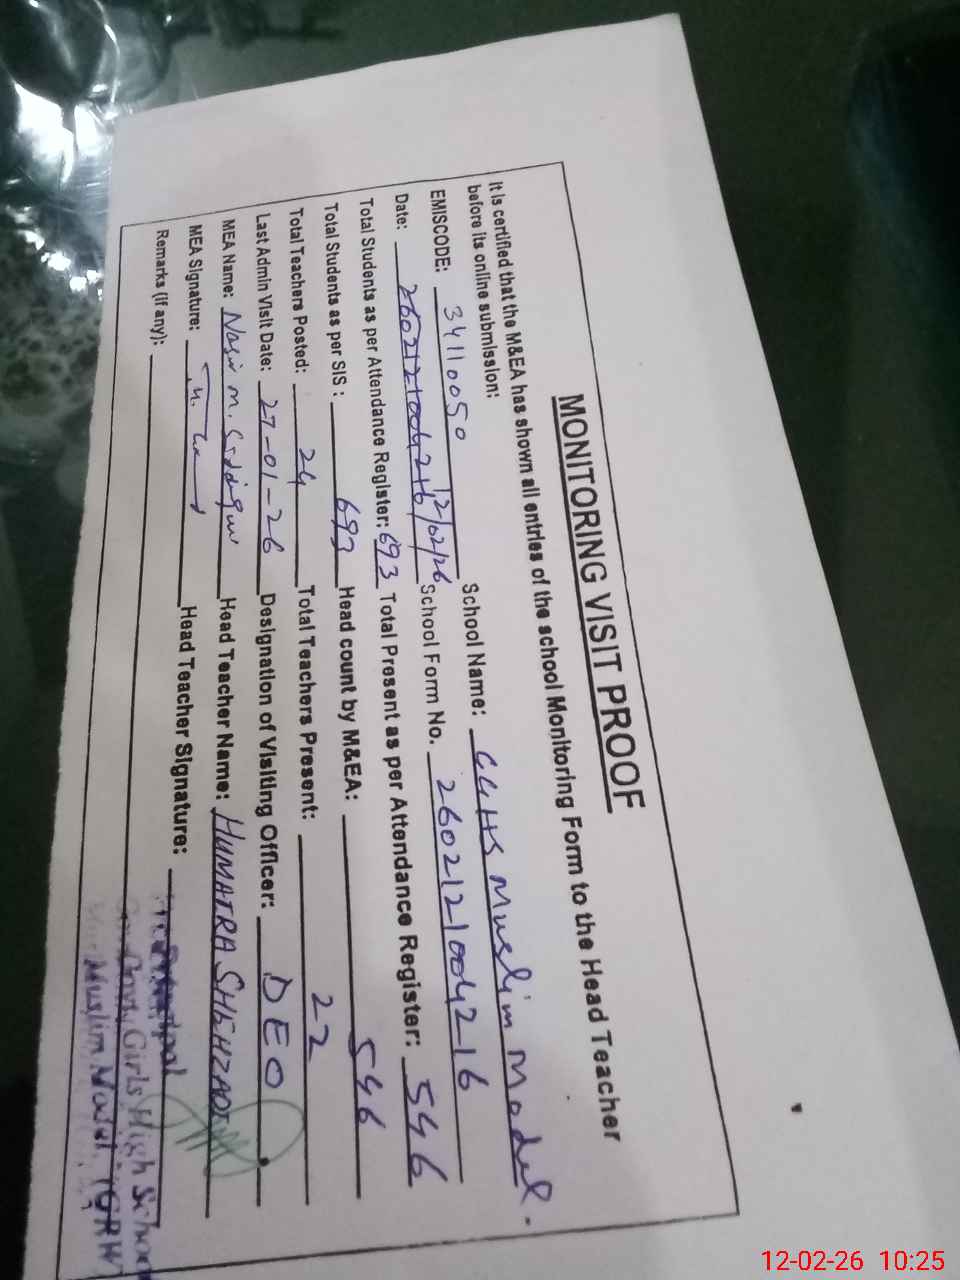 MONITORING VISIT PROOF
It is certified that the M&EA has shown all entries of the school Monitoring Form to the Head Teacher
before its online submission:
EMISCODE: 34110050 School Name: GGHS Muslim Model.
Date: 2602121004216 12/02/26 School Form No. 2602121004216
Total Students as per Attendance Register: 693 Total Present as per Attendance Register: 546
Total Students as per SIS : 693 Head count by M&EA: 546
Total Teachers Posted: 24 Total Teachers Present: 22
Last Admin Visit Date: 27-01-26 Designation of Visiting Officer: DEO
MEA Name: Nasir M. Head Teacher Name: HUMAIRA SHEHZADI
MEA Signature: Head Teacher Signature:
Remarks (if any):
Principal
Govt. Girls High School
Muslim Model, GRW
12-02-26 10:25